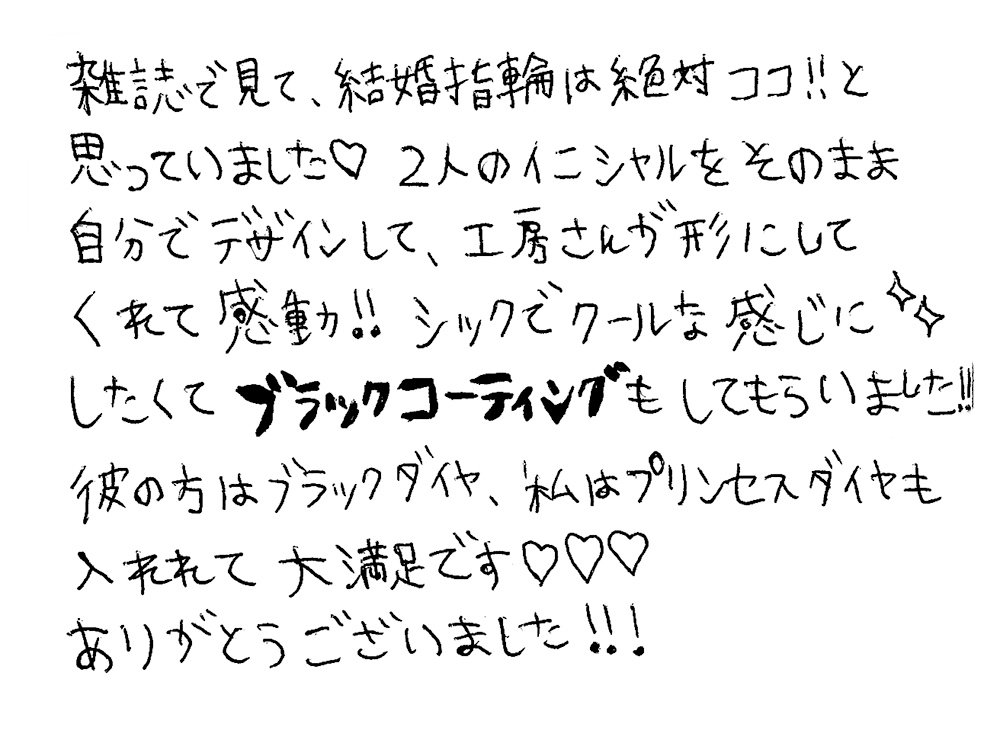 雑誌で見て、結婚指輪は絶対ココ!!と
思っていました♡ 2人のイニシャルをそのまま
自分でデザインして、工房さんが形にして
くれて感動!! シックでクールな感じに✧✧
したくてブラックコーティングもしてもらいました!!
彼の方はブラックダイヤ、私はプリンセスダイヤも
入れれて大満足です♡♡♡
ありがとうございました!!!